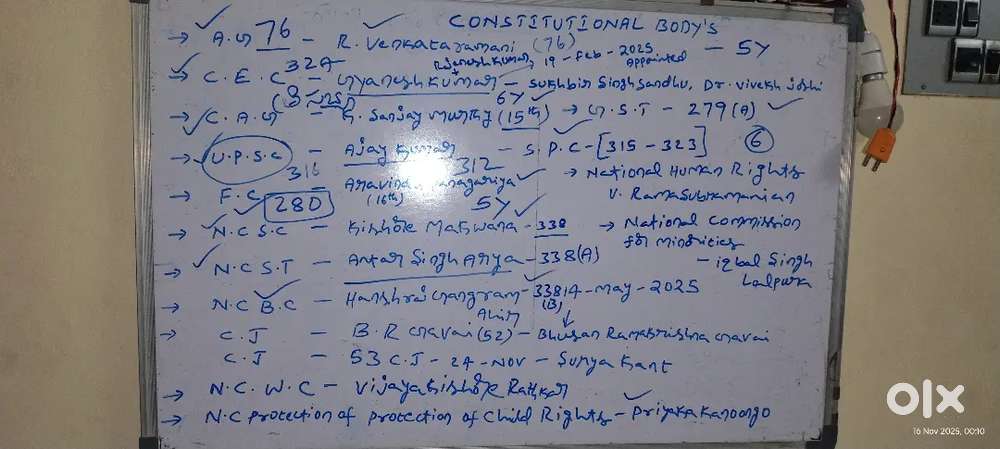 CONSTITUTIONAL BODY's
→ A.G 76 - R. Venkataramani (76) - 5Y
Rajeevkumar, 19-Feb-2025 Appointed
→ C.E.C 324 - Gyanesh Kumar - Sukhbir Singh Sandhu, Dr. Vivekh Joshi
6Y
→ C.A.G - K. Sanjay Murthy (15th) → G.S.T - 279(A)
→ U.P.S.C - Ajay Kumar - S.P.C - [315-323] 6
316 312
→ F.C 280 - Aravind Panagariya (16th)
→ National Human Rights
V. Ramasubramanian
5Y
→ N.C.S.C - Kishore Makwana - 338
→ National Commission
for minorities
- iqbal Singh
Lalpura
→ N.C.S.T - Antar Singh Arya - 338(A)
→ N.C.B.C - Hanshraj Gangram - 338 14-may-2025
Ahir (B)
→ C.J - B.R Gavai (52) - Bhusan Ramakrishna Gavai
C.J - 53 C.J - 24-NOV - Surya Kant
→ N.C.W.C - Vijaya Kishore Rathkar
→ N.C protection of protection of Child Rights - Priyaka Kanoongo
olx
16 Nov 2025, 00:10